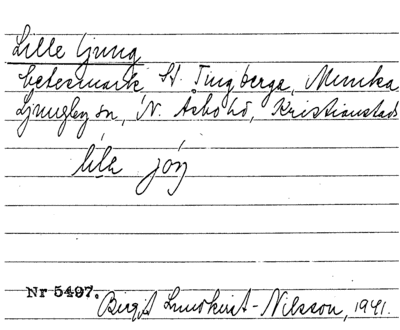 Lille Ljung
betesmark, St. Tingberga, Munka
Ljungby sn, N. Åsbo hd, Kristianstads
lilə
Nr 5497.
Birgit Lundkvist-Nilsson, 1941.